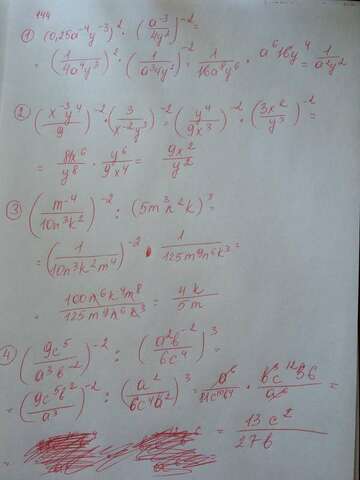 144
① (0,25a⁻⁴y⁻³)² · (a⁻³/4y²)⁻² =
= (1/4a⁴y³)² · (1/a³4y²)⁻² = 1/16a⁸y⁶ · a⁶16y⁴ = 1/a²y²
② (x⁻³y⁴/9)⁻² · (3/x⁻²y³)⁻² = (y⁴/9x³)⁻² · (3x²/y³)⁻² =
= 81x⁶/y⁸ · y⁶/9x⁴ = 9x²/y²
③ (m⁻⁴/10n³k²)⁻² : (5m³n²k)³ =
= (1/10n³k²m⁴)⁻² · 1/125m⁹n⁶k³ =
= 100n⁶k⁴m⁸/125m⁹n⁶k³ = 4k/5m
④ (9c⁵/a³b⁻²)⁻² : (a²b⁻²/6c⁴)³ =
= (9c⁵b²/a³)⁻² : (a²/6c⁴b²)³ =
= 13c²/27b